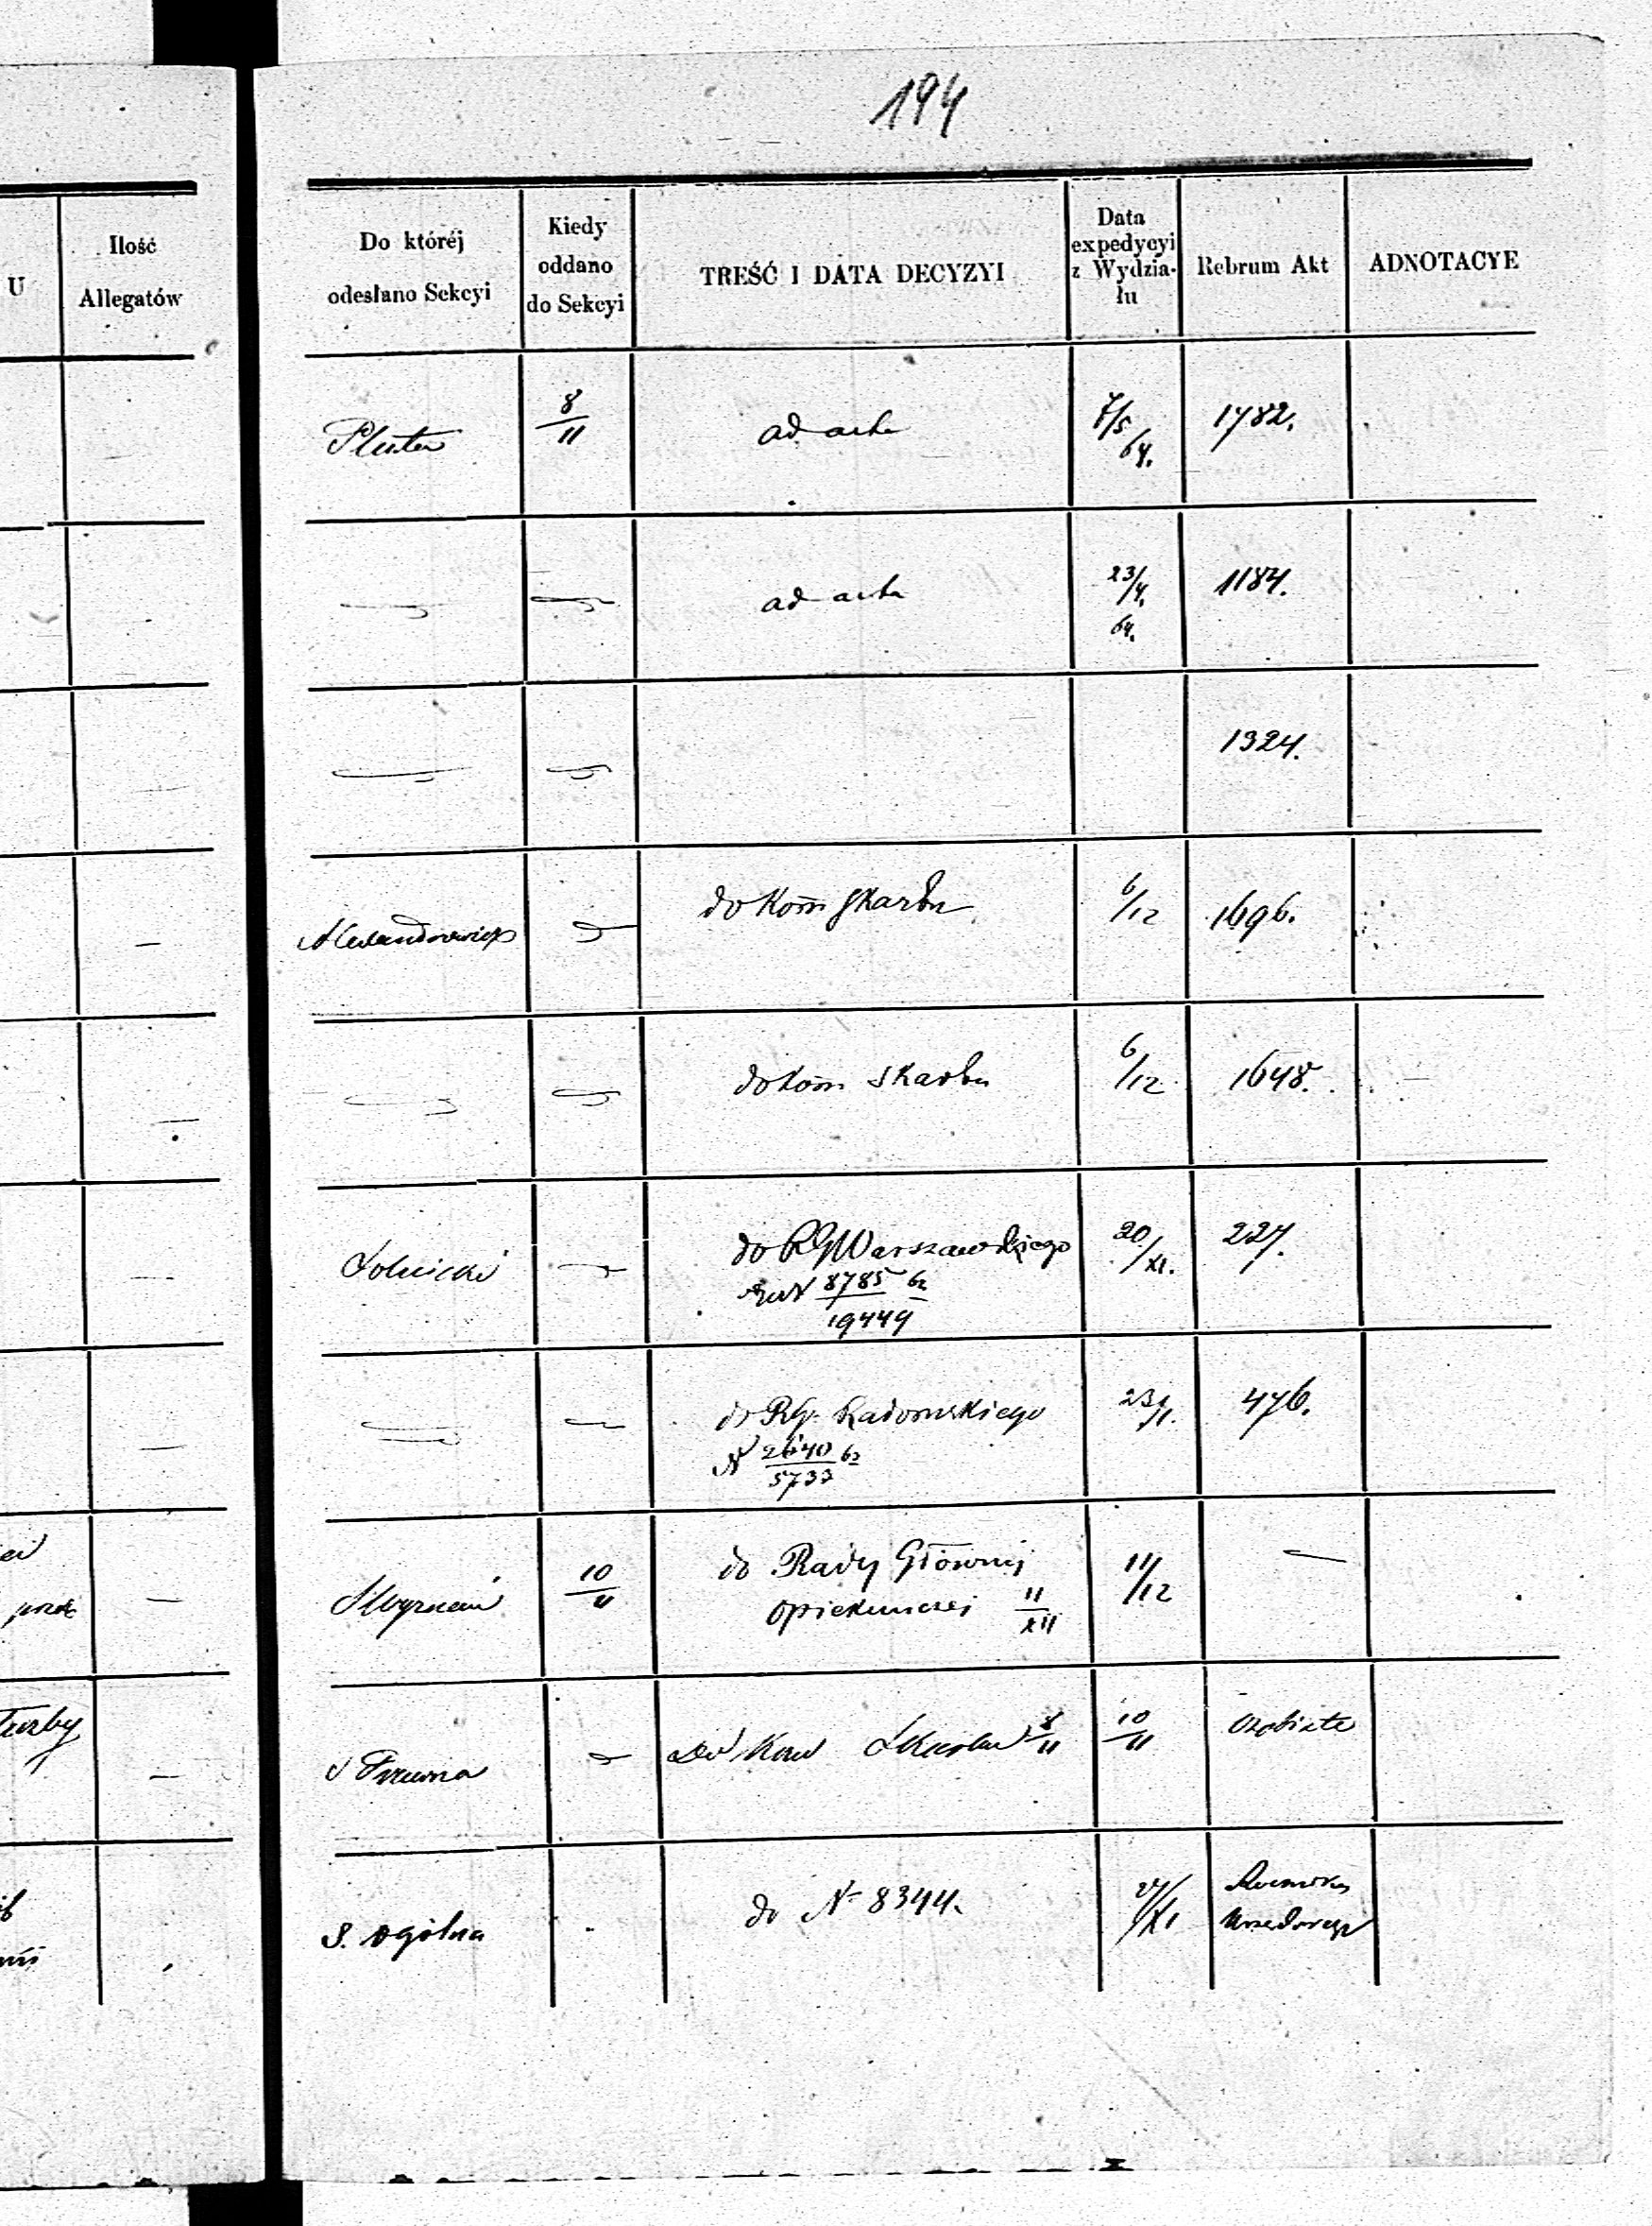 194
U
Ilość
Allegatów
Do któréj
odesłano Sekcyi
Kiedy
oddano
do Sekcyi
TREŚĆ I DATA DECYZYI
Data
expedycyi
z Wydzia-
łu
Rebrum Akt
ADNOTACYE
Pluta
8/11
ad acta
7/5 64.
1782.
ad acta
23/4. 64.
1184.
1324.
Alexandrowicz
do Kom Skarbu
6/12
1696.
do Kom Skarbu
6/12
1648.
do RG Warszawskiego
8785 62
19444
20/XI.
227.
do RG. Radomskiego
N 2640 62
5733
476.
10/11
do Rady Głównej
opiekunczej 11/XII
11/12
S Prawna
8/11
10/11
osobiste
S. ogólna
do N 8344.